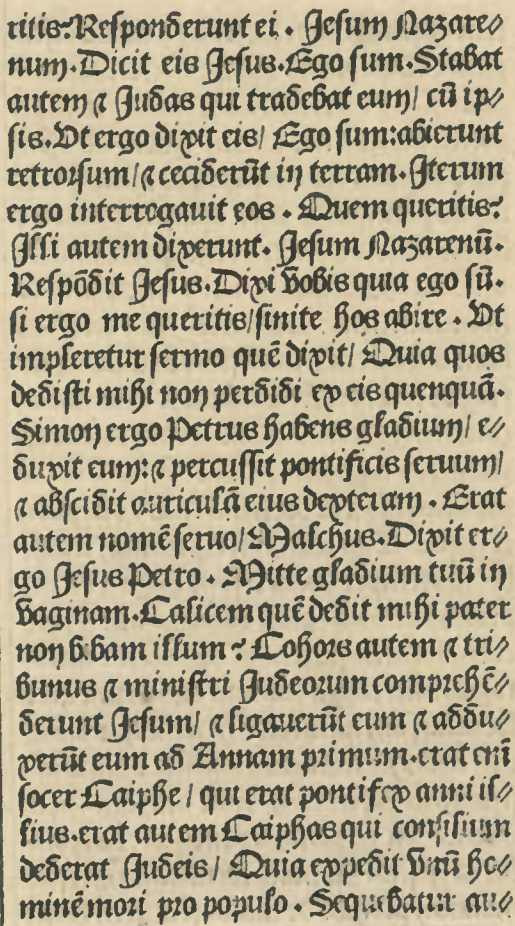 ritis? Responderunt ei. Jesum Nazare⸗
num. Dicit eis Jesus. Ego sum. Stabat
autem ⁊ Judas qui tradebat eum/ cū ip⸗
sis. Vt ergo dixit eis/ Ego sum: abierunt
retrorsum/ ⁊ ceciderūt in terram. Iterum
ergo interrogauit eos. Quem queritis?
Illi autem dixerunt. Jesum Nazarenū.
Respōdit Jesus. Dixi vobis quia ego sū.
si ergo me queritis/ sinite hos abire. Vt
impleretur sermo quē dixit/ Quia quos
dedisti mihi non perdidi ex eis quenquā.
Simon ergo Petrus habens gladium/ e⸗
duxit eum: ⁊ percussit pontificis seruum/
⁊ abscidit auriculā eius dexteram. Erat
autem nomē seruo/ Malchus. Dixit er⸗
go Jesus Petro. Mitte gladium tuū in
vaginam. Calicem quē dedit mihi pater
non bibam illum? Cohors autem ⁊ tri⸗
bunus ⁊ ministri Judeorum comprehē⸗
derunt Jesum/ ⁊ ligauerūt eum ⁊ addu⸗
xerūt eum ad Annam primum. erat eni
socer Caiphe/ qui erat pontifex anni il⸗
lius. erat autem Caiphas qui consilium
dederat Judeis/ Quia expedit vnū ho⸗
minē mori pro populo. Sequebatur au⸗